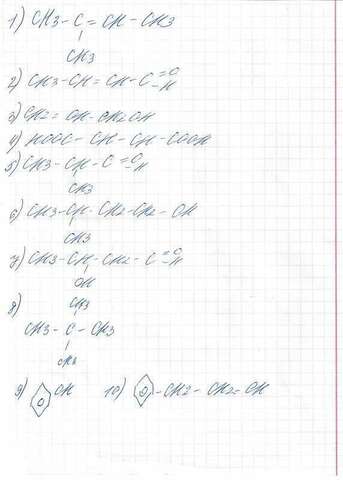 1) CH3 - C = CH - CH3
CH3
2) CH3 - CH = CH - C =O -H
3) CH2 = CH - CH2OH
4) HOOC - CH - CH - COOH
5) CH3 - CH - C =O -H
CH3
6) CH3 - CH - CH2 - CH2 - OH
CH3
7) CH3 - CH - CH2 - C =O -H
OH
8) CH3
CH3 - C - CH3
CH3
9) OH 10) - CH2 - CH2 = OH